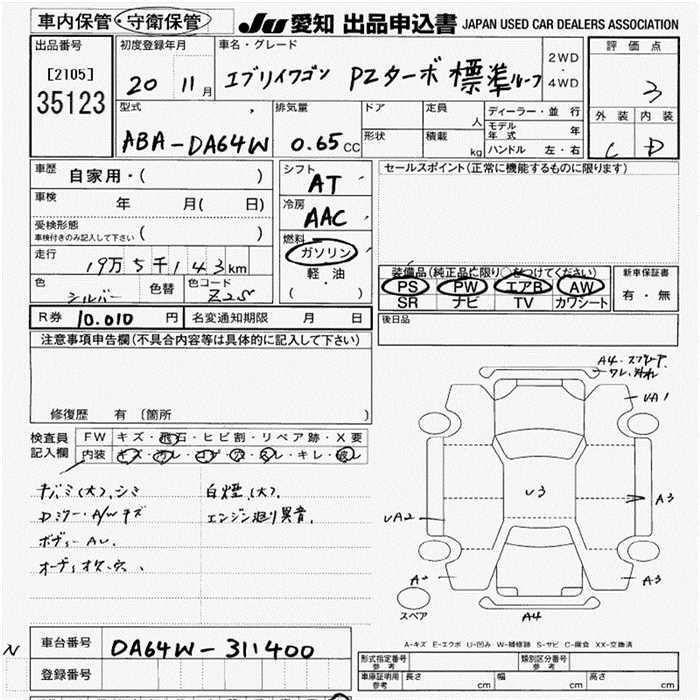 車内保管・守衛保管 JU 愛知 出品申込書 JAPAN USED CAR DEALERS ASSOCIATION
出品番号 初度登録年月 車名・グレード 2WD・4WD 評価点
[2105] 35123 20 11月 エブリイワゴン PZターボ 標準ルーフ 3
型式 排気量 ドア 定員 人 ディーラー・並行 外装 内装
ABA-DA64W 0.65cc 形状 積載 kg モデル年式 年 C D
ハンドル 左・右
車歴 自家用・( ) シフト AT セールスポイント(正常に機能するものに限ります)
車検 年 月( 日) 冷房 AAC
受検形態 車検付きのみ記入して下さい ( )
燃料 ガソリン 軽油 ( )
走行 19万5千143km
色 シルバー 色替 色コード Z2S
装備品(純正品に限り○をつけてください) 新車保証書
PS PW エアB AW 有・無
SR ナビ TV カワシート
R券 10.010 円 名変通知期限 月 日 後日品
注意事項申告欄(不具合内容等は具体的に記入して下さい)
修復歴 有 (箇所
検査員記入欄 FW キズ・飛石・ヒビ割・リペア跡・X要
内装 キズ・汚レ・コゲ・穴・スレ・キレ・破レ
キバミ(大)、シミ 白煙(大)、
Dミラー・A/Wキズ エンジン廻り異音、
ボディーAU、
オーディオ欠・穴、
A4・スプレー
ワレ、外れ
UA1
U3
A3
UA2
A3
A4
スペア
A-キズ E-エクボ U-凹み W-補修跡 S-サビ C-腐食 XX-交換済
N
車台番号 DA64W-311400
登録番号
形式指定番号 参考 類別区分番号 参考
車庫証明用 参考 長さ cm 幅 cm 高さ cm